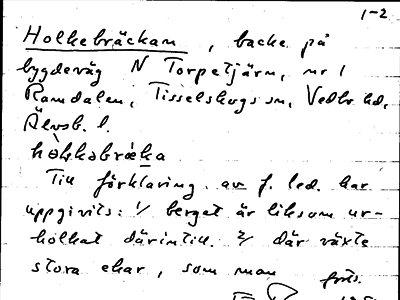 1-2
Holkebräckan, backe på
bygdeväg N Torpetjärn, nr 1
Ramdalen, Tisselskogs sn, Vedbo hd,
Älvsb. l.
hòl̀kəbrǽka
Till förklaring av f. led. har
uppgivits: 1/ berget är liksom ur-
holkat därintill. 2/ där växte
stora ekar, som man
forts.